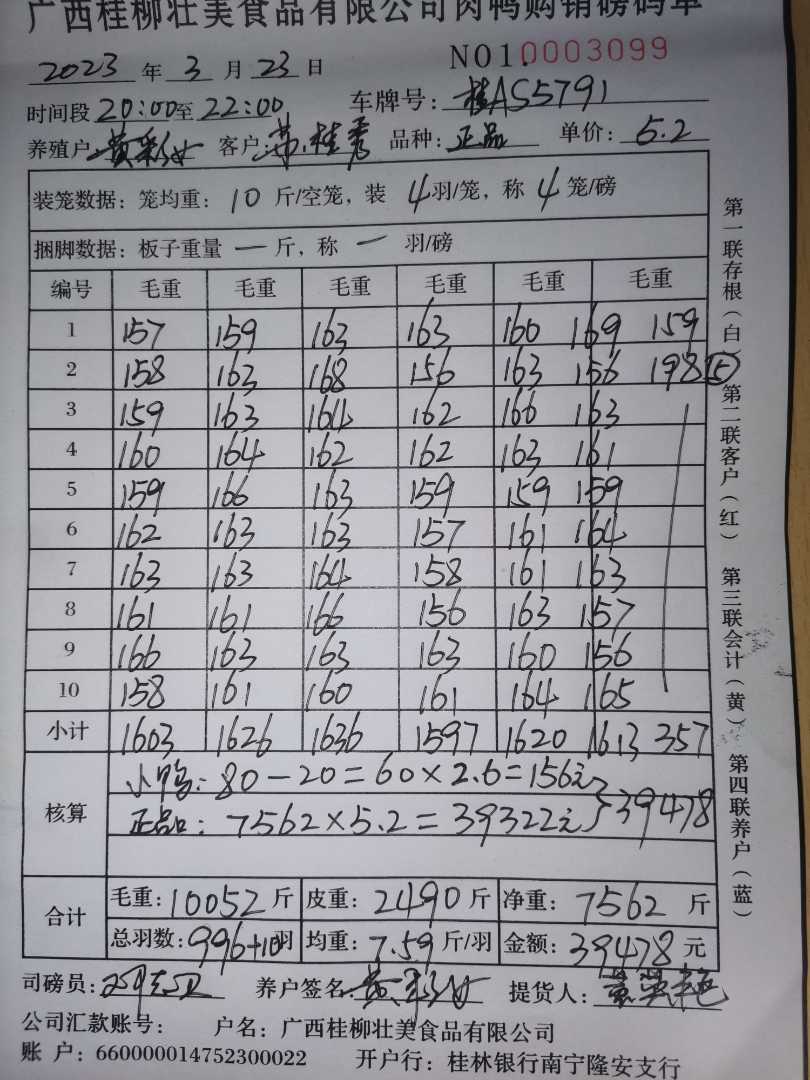 广西桂柳壮美食品有限公司肉鸭购销磅码单
2023 年 3 月 23 日 NO1.0003099
时间段 20:00至 22:00 车牌号: 桂AS5791
养殖户: 黄彩女 客户: 苏桂秀 品种: 正品 单价: 5.2
装笼数据: 笼均重: 10 斤/空笼, 装 4羽/笼, 称 4 笼/磅
捆脚数据: 板子重量 一 斤, 称 一 羽/磅
编号 毛重 毛重 毛重 毛重 毛重 毛重
1 157 159 163 163 160 169 159
2 158 163 168 156 163 156 198 ⑤
3 159 163 164 162 166 163
4 160 164 162 162 163 161
5 159 166 163 159 159 159
6 162 163 163 157 161 164
7 163 163 164 158 161 163
8 161 161 166 156 163 157
9 166 163 163 163 160 156
10 158 161 160 161 164 165
小计 1603 1626 1636 1597 1620 1613 357
核算
小鸭: 80-20=60×2.6=156元
正品: 7562×5.2=39322元 }39478
合计
毛重: 10052 斤 皮重: 2490 斤 净重: 7562 斤
总羽数: 996+10羽 均重: 7.59 斤/羽 金额: 39478 元
司磅员: 养户签名: 黄彩女 提货人:
公司汇款账号: 户名: 广西桂柳壮美食品有限公司
账 户: 660000014752300022 开户行: 桂林银行南宁隆安支行
第一联存根(白) 第二联客户(红) 第三联会计(黄) 第四联养户(蓝)